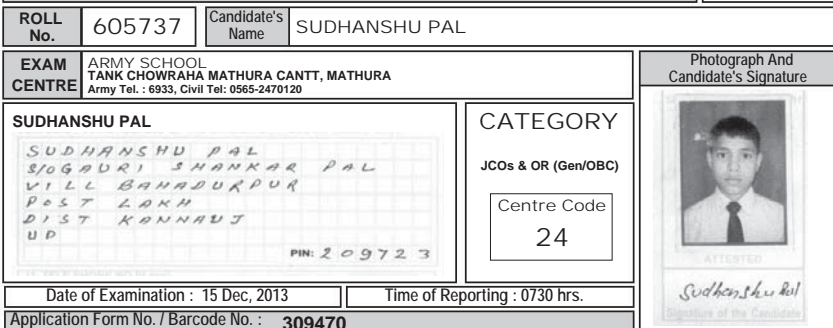 ROLL No. 605737 Candidate's Name SUDHANSHU PAL
EXAM CENTRE
ARMY SCHOOL
TANK CHOWRAHA MATHURA CANTT, MATHURA
Army Tel. : 6933, Civil Tel: 0565-2470120
Photograph And
Candidate's Signature
SUDHANSHU PAL
SUDHANSHU PAL
S/O GAURI SHANKAR PAL
VILL BAHADURPUR
POST LAKH
DIST KANNAUJ
UP
PIN: 209723
CATEGORY
JCOs & OR (Gen/OBC)
Centre Code
24
ATTESTED
Sudhanshu Pal
Signature of the Candidate
Date of Examination : 15 Dec, 2013 Time of Reporting : 0730 hrs.
Application Form No. / Barcode No. : 309470